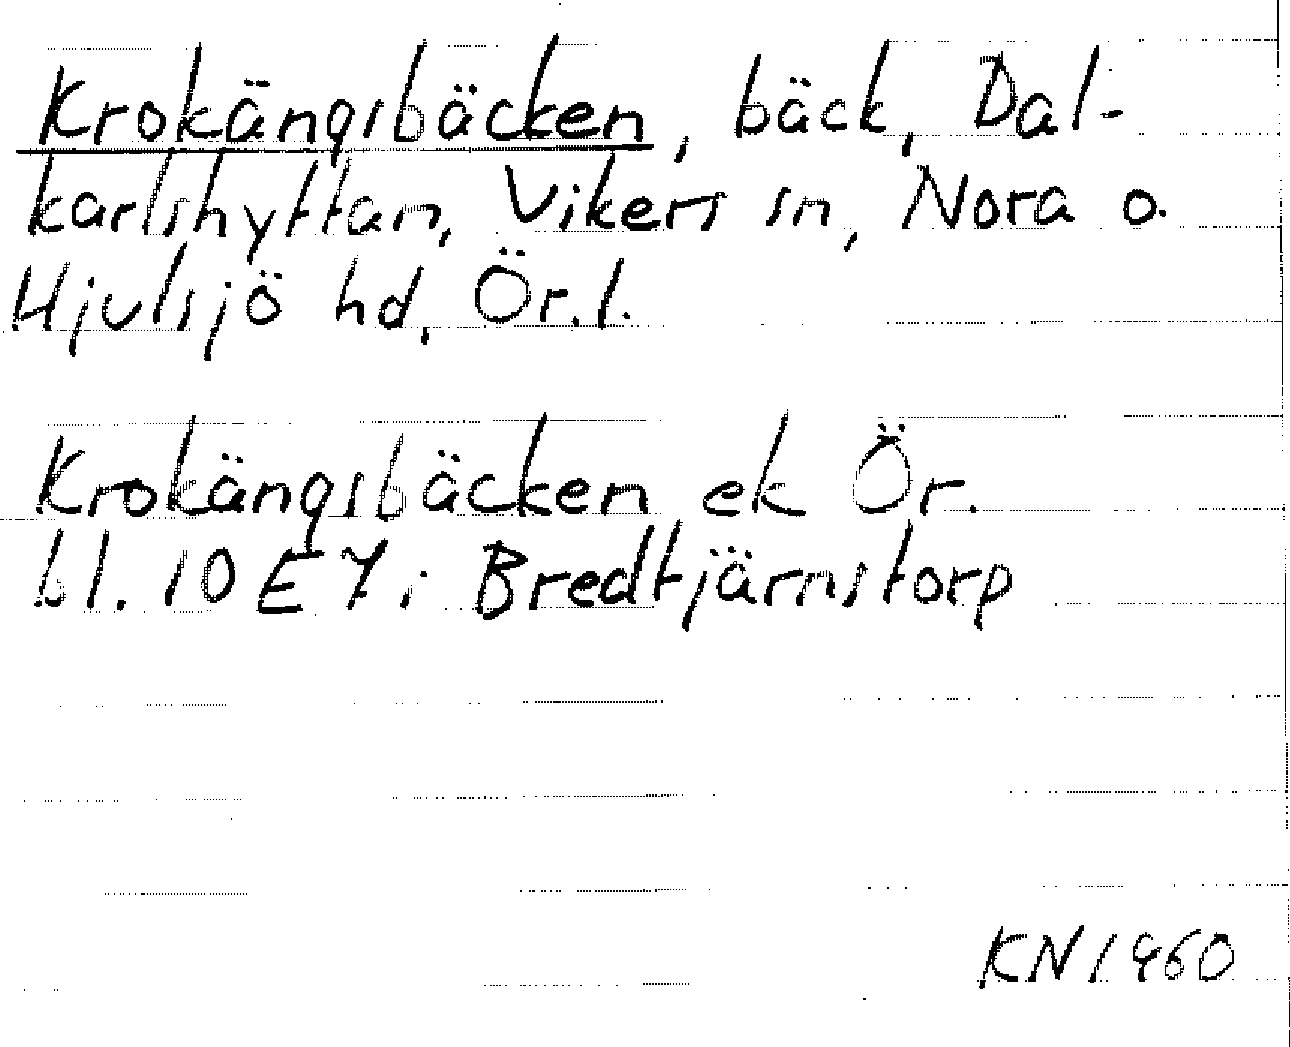 Krokängsbäcken, bäck, Dal-
karlshyttan, Vikers sn, Nora o.
Hjulsjö hd, Ör. l.
Krokängsbäcken ek Ör.
bl. 10 E 7 i Bredtjärnstorp
KN 1960